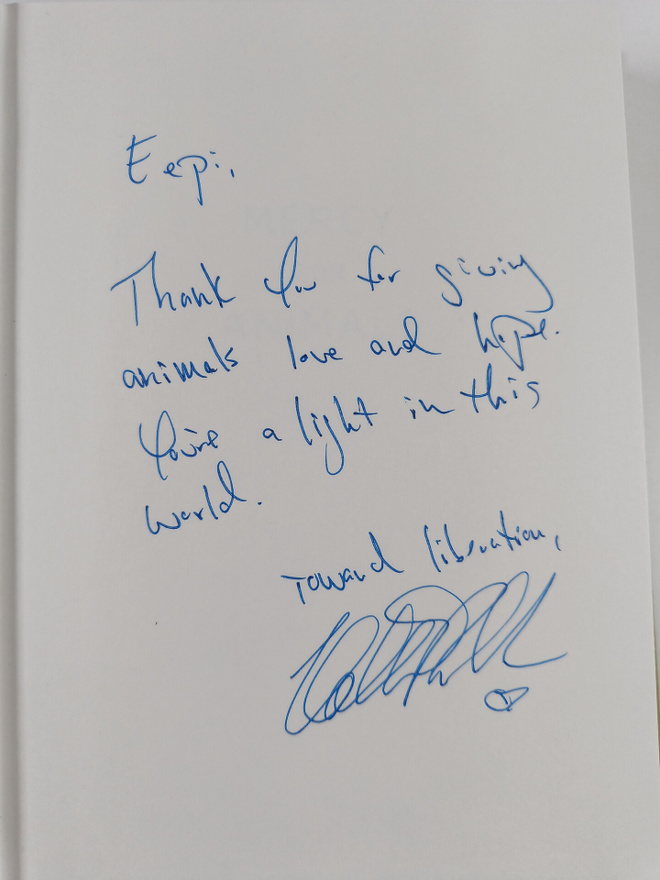 Eepi,
Thank You for giving
animals love and hope.
You're a light in this
world.
Toward liberation,
MERCY